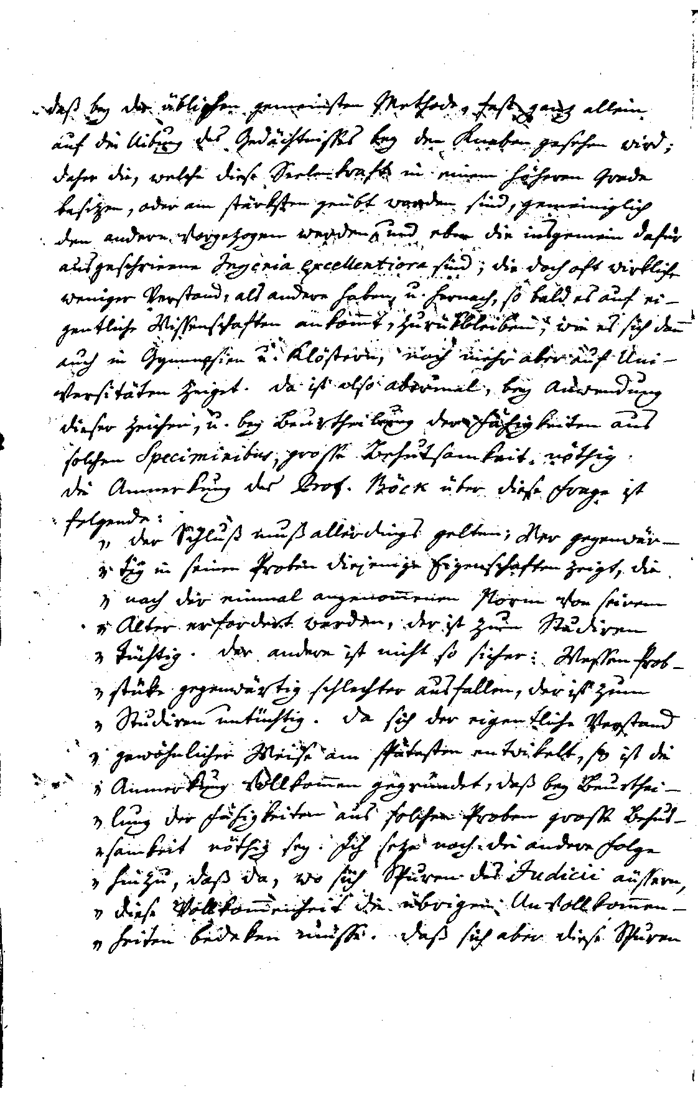 daß bey der üblichen gemeinsten Methode, fast ganz allein
auf die Uibung des Gedächtnisses bey den Knaben gesehen wird;
daher die, welche diese Seelenkraft in einem höheren Grade
besizen, oder am stärksten geübt worden sind, gemeiniglich
den andern vorgezogen werden, und eben die insgemein dafür
ausgeschriene Ingenia excellentiora sind; die doch oft wirklich
weniger Verstand, als andere haben, u. hernach, so bald es auf ei-
gentliche Wissenschaften ankommt, zurükbleiben; wie es sich denn
auch in Gymnasien u. Klöstern, noch mehr aber auf Uni-
versitäten zeiget. Da ist also abermal, bey Anwendung
dieser Zeichen, u. bey Beurtheilung der Fähigkeiten aus
solchen Speciminibus, grosse Behutsamkeit nöthig.
Die Anmerkung des Prof. Böck über diese Frage ist
folgende:
„ Der Schluß muß allerdings gelten; Wer gegenwär-
„ tig in seinen Proben diejenige Eigenschaften zeigt, die
„ nach der einmal angenommenen Norm von seinem
„ Alter erfordert werden, der ist zum Studiren
„ tüchtig. Der andere ist nicht so sicher: Wessen Prob-
„ stüke gegenwärtig schlechter ausfallen, der ist zum
„ Studiren untüchtig. Da sich der eigentliche Verstand
„ gewöhnlicher Weise am spätesten entwikelt, so ist die
„ Anmerkung vollkommen gegründet, daß bey Beurthei-
„ lung der Fähigkeiten aus solchen Proben grosse Behut-
„ samkeit nöthig sey. Ich seze noch die andere Folge
„ hinzu, daß da, wo sich Spuren des Iudicii äussern,
„ diese Vollkommenheit die übrigen Unvollkommen-
„ heiten bedeken müsse. Daß sich aber diese Spuren